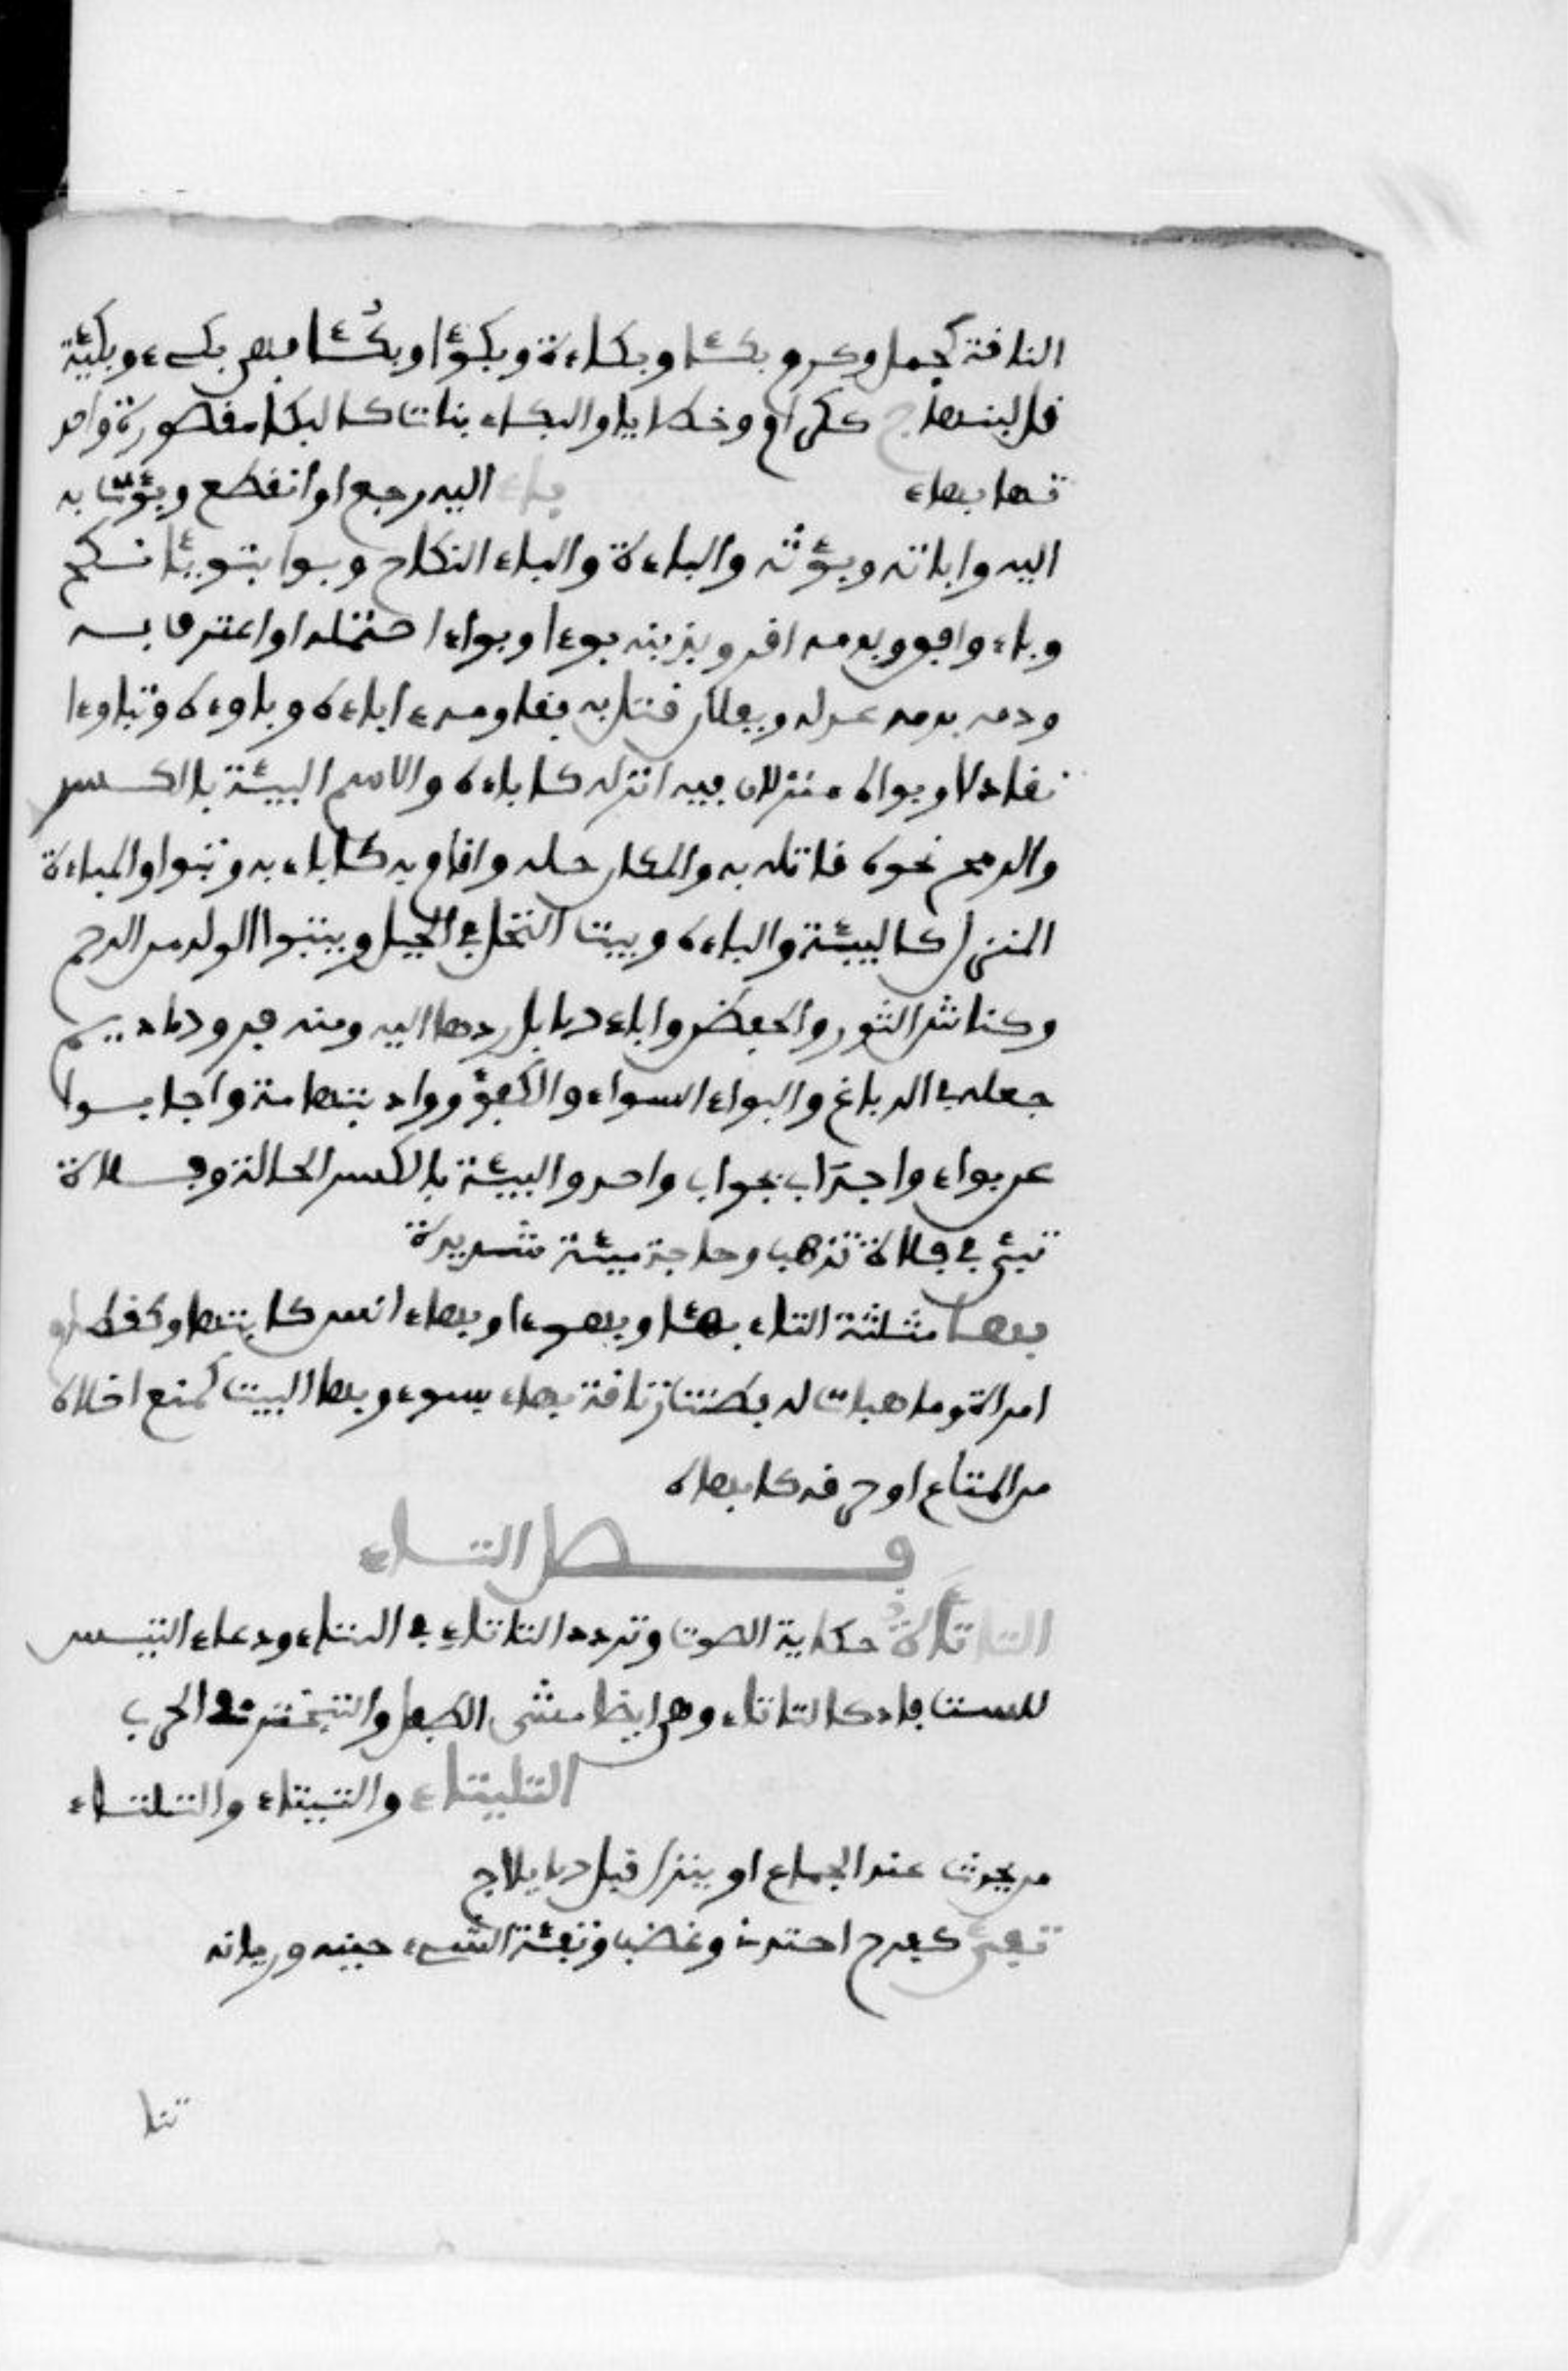 الناقة كجعل وكرم بكئا وبكاءة وبكوءا وبكئا فهي بكيء وبكيئة
قل لبنها ج ككرام وخطايا والبكاء نبات كالبكا مقصورة واحد
تهما بهاء باء اليه رجع او انقطع وبؤت به
اليه واباته وبؤته والباءة والباء النكاح وبوا تبويئا نكح
وباء وافق وبدمه اقر وبذنبه بوءا وبواء احتمله او اعترف به
ودمه بدمه عدله وبفلان قتل به فقاومه اباءه وباوءه وتباوءا
تعادلا وبواه منزلا وفيه انزله كاباءه والاسم البيئة بالكسر
والرمح نحوه قابله به والمكان حله واقام به كاباء به وتبوا والمباءة
المنزل كالبيئة والباءه وبيت النحل في الجبل ومتبوا الولد من الرحم
وكناس الثور والمعطن واباء بالابل ردها اليه ومنه فر والاديم
جعله في الدباغ والبواء السواء والكفؤ وواد بتهامة واجابوا
عن بواء واحد اي بجواب واحد والبيئة بالكسر الحالة وفلاة
تبيء في فلاة تذهب وحاجة مبيئة شديدة
بها مثلثة الهاء بهئا وبهوءا وبهاء انس كابتها وكقطام
امراة وما بهات له ما فطنت وناقة بهاء بسوء وبها البيت كمنع اخلاه
من المتاع او خرقه كابهاه
فصل التاء
التاتاة حكاية الصوت وتردد التاتاء في التاء ودعاء التيس
للسفاد كالتاتاء وهي ايضا مشي الطفل والتبختر في الحرب
التيتاء والتيتاء والتئتاء
من يحدث عند الجماع او ينزل قبل الايلاج
تفئ كفرح احتد وغضب وتفئة الشيء حينه وزمانه
تنا